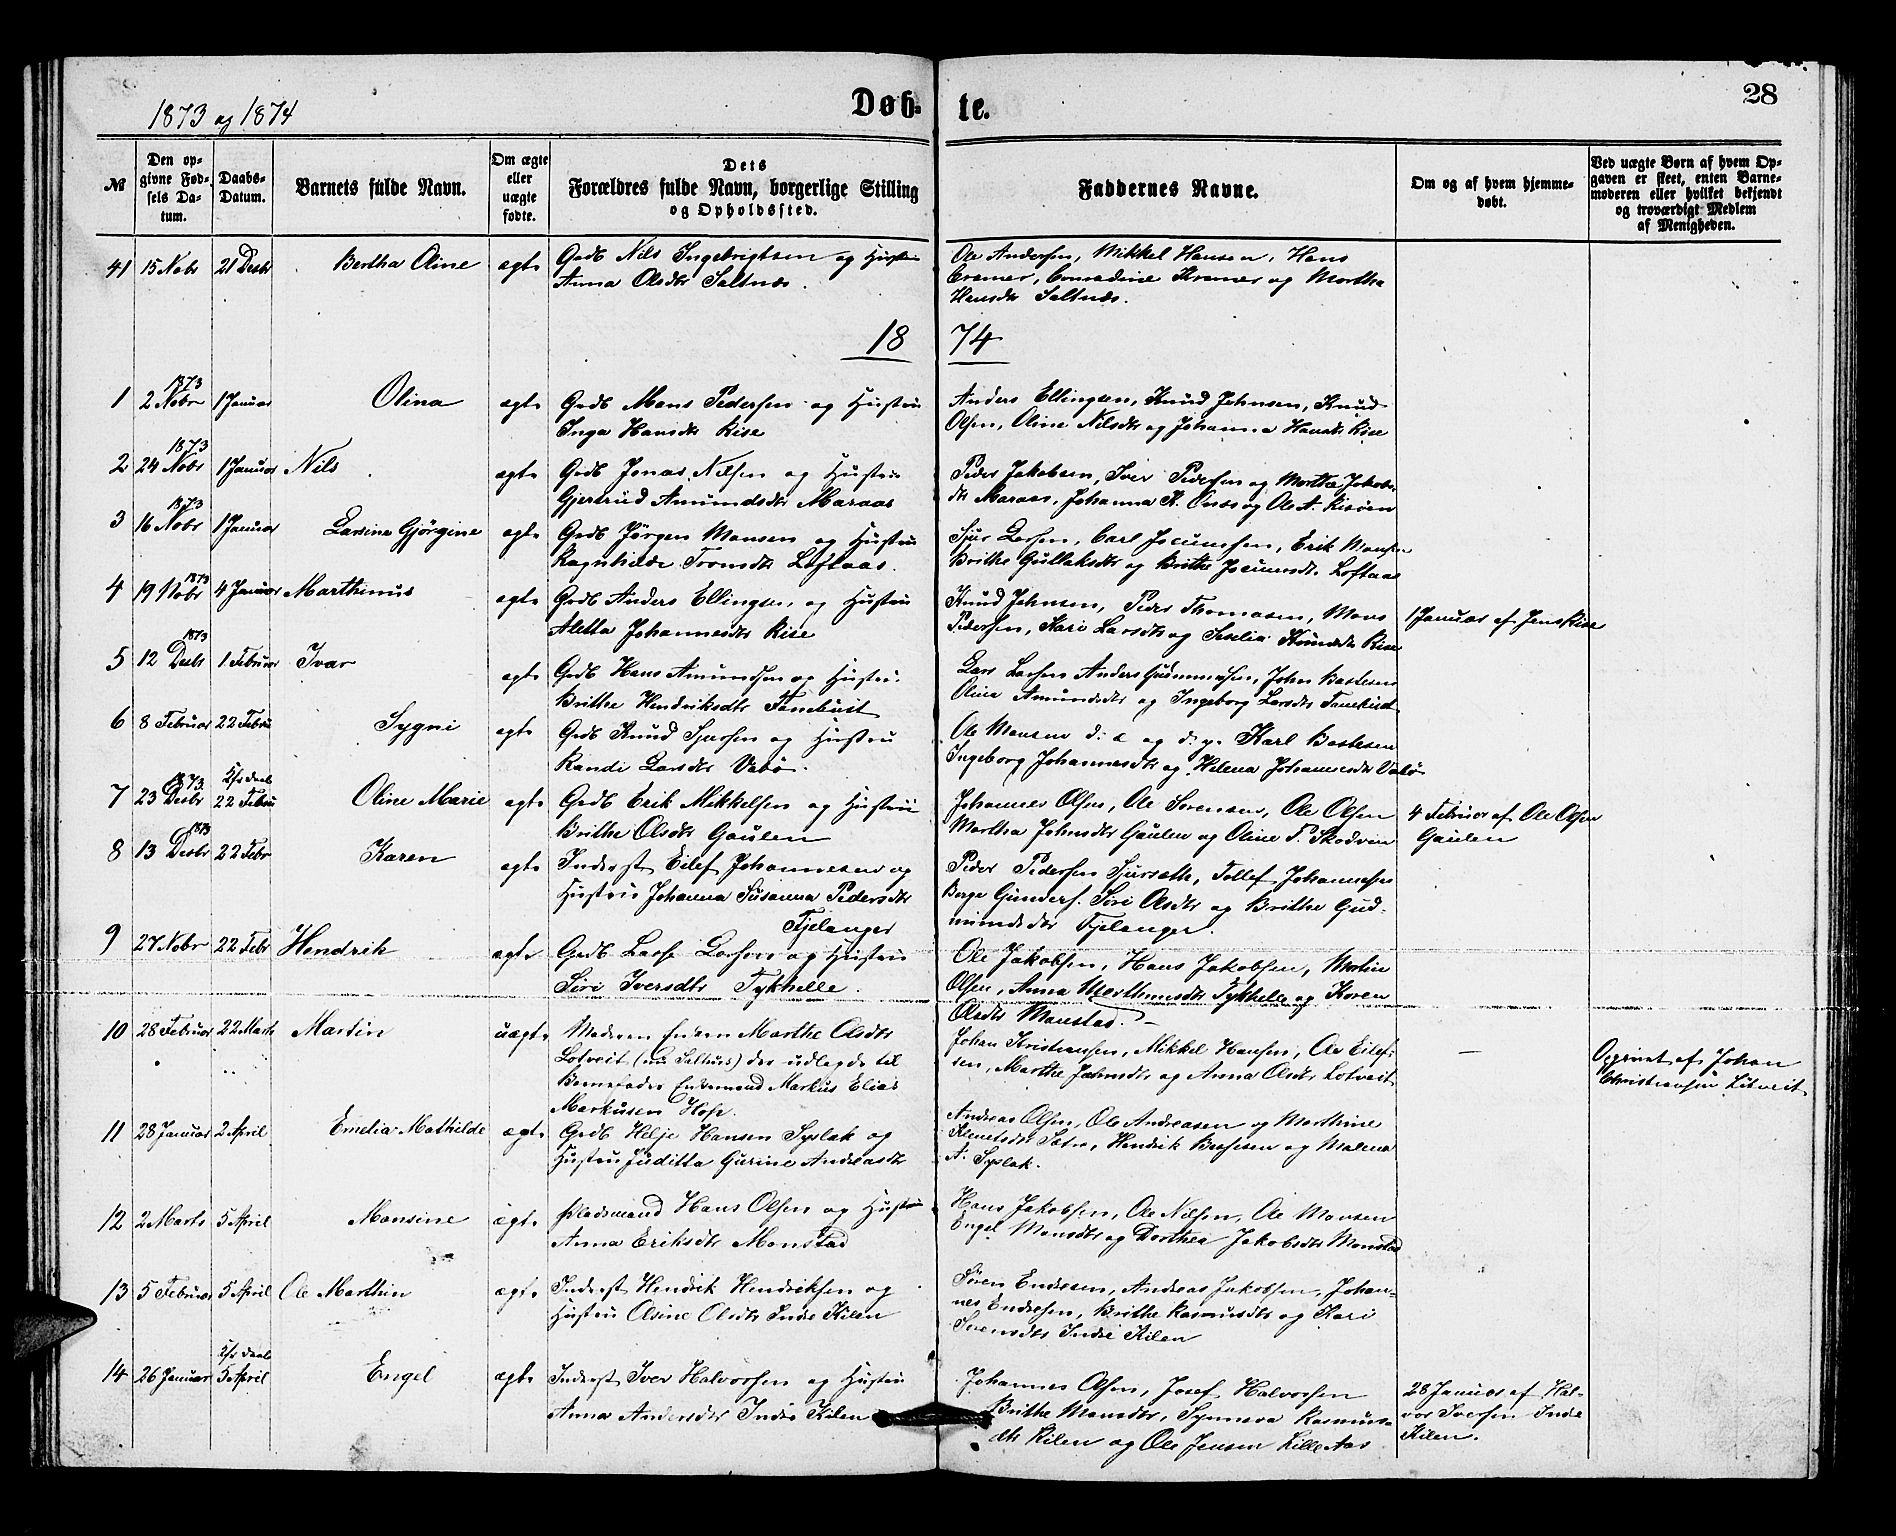 1873 og 1874
Døb-
te.
28
№
Den op-
givne Fød-
sels Da-
tum.
Daabs-
Datum.
Barnets fulde Navn.
Om ægte
eller
uægte
fødte.
Dets
Forældres fulde Navn, borgerlige Stilling
og Opholdssted.
Faddernes Navne.
Om og af hvem hjemme-
døbt.
Ved uægte Børn af hvem Op-
gaven er skeet, enten Barne-
moderen eller hvilket bekjendt
og troværdigt Medlem
af Menigheden.
41 15 Nobr 21 Desbr Bertha Oline ægte
Grdb Nils Ingebrigtsen og Hustru
Anna Olsdtr Saltnæs.
Ole Andersen, Mikkel Hansen, Hans
Cramer, Conradine Kramer og Martha
Hansdtr Saltnæs.
18 74
1873
1 2 Nobr 1 Januar Olina ægte
Grdb Mons Pedersen og Hustru
Inga Hansdtr Rise
Anders Ellingsen, Knud Johnsen, Knud
Olsen, Oline Nilsdtr og Johanna Hansdtr Rise
1873
2 24 Nobr 1 Januar Nils ægte
Grdb Jonas Nilsen og Hustru
Gjertrud Amundsdtr Maraas
Peder Jakobsen, Iver Pedersen og Marthe Jakobs-
dtr Maraas, Johanna K. og Ole A. Risøen
1873
3 16 Nobr 1 Januar Larsine Gjørgine ægte
Grdb Jørgen Monsen og Hustru
Ragnhilde Tronsdtr Loftaas.
Sjur Larsen, Carl Jocumsen, Erik Monsen
Brithe Gullaksdtr og Brithe Jocumsdtr Loftaas
1873
4 19 Nobr 4 Januar Marthinus ægte
Grdb Anders Ellingsen og Hustru
Aletta Johannesdtr Rise
Knud Johnsen, Peder Thomasen, Mons
Pedersen, Kari Larsdtr og Seselia Knudsdtr Rise
1 Januar af Jens Rise
1873
5 12 Desbr 1 Februar Ivar ægte
Grdb Hans Amundsen og Hustru
Brithe Hendriksdtr Fanebust
Lars Larsen Anders Gudmundsen, John Bastesen
Olina Amundsdtr og Ingeborg Larsdtr Fanebust
6 8 Februar 22 Febru Sygni ægte
Grdb Knud Sjursen og Hustru
Randi Larsdtr Vabø.
Ole Monsen d: æ og d. y. Karl Bastesen
Ingeborg Johannesdtr og Helena Johannesdtr Vabø
1873
7 23 Desbr 22 Febru Oline Marie ægte
Grdb Erik Mikkelsen og Hustru
Brithe Olsdtr Gaulen
Johannes Olsen, Ole Sørensen, Ole Olsen
Martha Johnsdtr Gaulen og Oline T. Skodven
4 Februar af Ole Olsen
Gaulen
1873
8 13 Desbr 22 Febr Karen ægte
Inderst Eilef Johannesen og
Hustru Johanna Susanna Pedersdtr
Fjelanger
Peder Pedersen Sjursæth, Tollef Johannesen
Børge Gunders. Siri Olsdtr og Brithe Gud-
mundsdtr Fjelanger.
9 27 Nobr 22 Febr Hendrik ægte
Grdb Lasse Larsen og Hustru
Siri Iversdtr Tykhelle.
Ole Jakobsen, Hans Jakobsen, Martin
Olsen, Anna Marthinusdtr Tykhelle og Karen
Olsdtr Monstad.
10 28 Februar 22 Marts Martin uægte
Moderen Enken Marthe Olsdtr
Lotveit (nu Salthus) der udlegde til
Barnefader Enkemand Markus Elias
Markusen Hope.
Johan Kristiansen, Mikkel Hansen, Ole Eilef-
sen, Marthe Johnsdtr og Anna Olsdtr Lotveit
—
Opgivet af Johan
Christiansen Litveit.
11 28 Januar 2 April Emelia Mathilde ægte
Grdb Helje Hansen Syslak og
Hustru Juditta Gurine Andreasdtr
Andreas Olsen, Ole Andreasen og Marthine
Klemetsdtr Sætre, Hendrik og Malena
A. Syslak.
12 2 Marts 5 April Monsine ægte
Pladsmand Hans Olsen og Hustru
Anna Eriksdtr Monstad
Hans Jakobsen, Ole Nilsen, Ole Monsen
Engel Monsdtr og Dorthea Jakobsdtr Monstad
13 5 Februar 5 April Ole Marthin ægte
Inderst Hendrik Hendriksen og
Hustru Olsine Olsdtr Indre Kilen
Søren Endresen, Andreas Jakobsen, Johan-
nes Endresen, Brithe Rasmusdtr og Kari
Svensdtr Indre Kilen
14 26 Januar 5 April Engel ægte
Inderst Iver Halvorsen og Hustru
Anna Andersdtr Indre Kilen
Johannes Olsen, Josef Halvorsen
Brithe Monsdtr, Synneva Rasmus-
dtr Kilen og Ole Jensen Lille Aas
28 Januar af Hal-
vor Iversen Indre
Kilen.